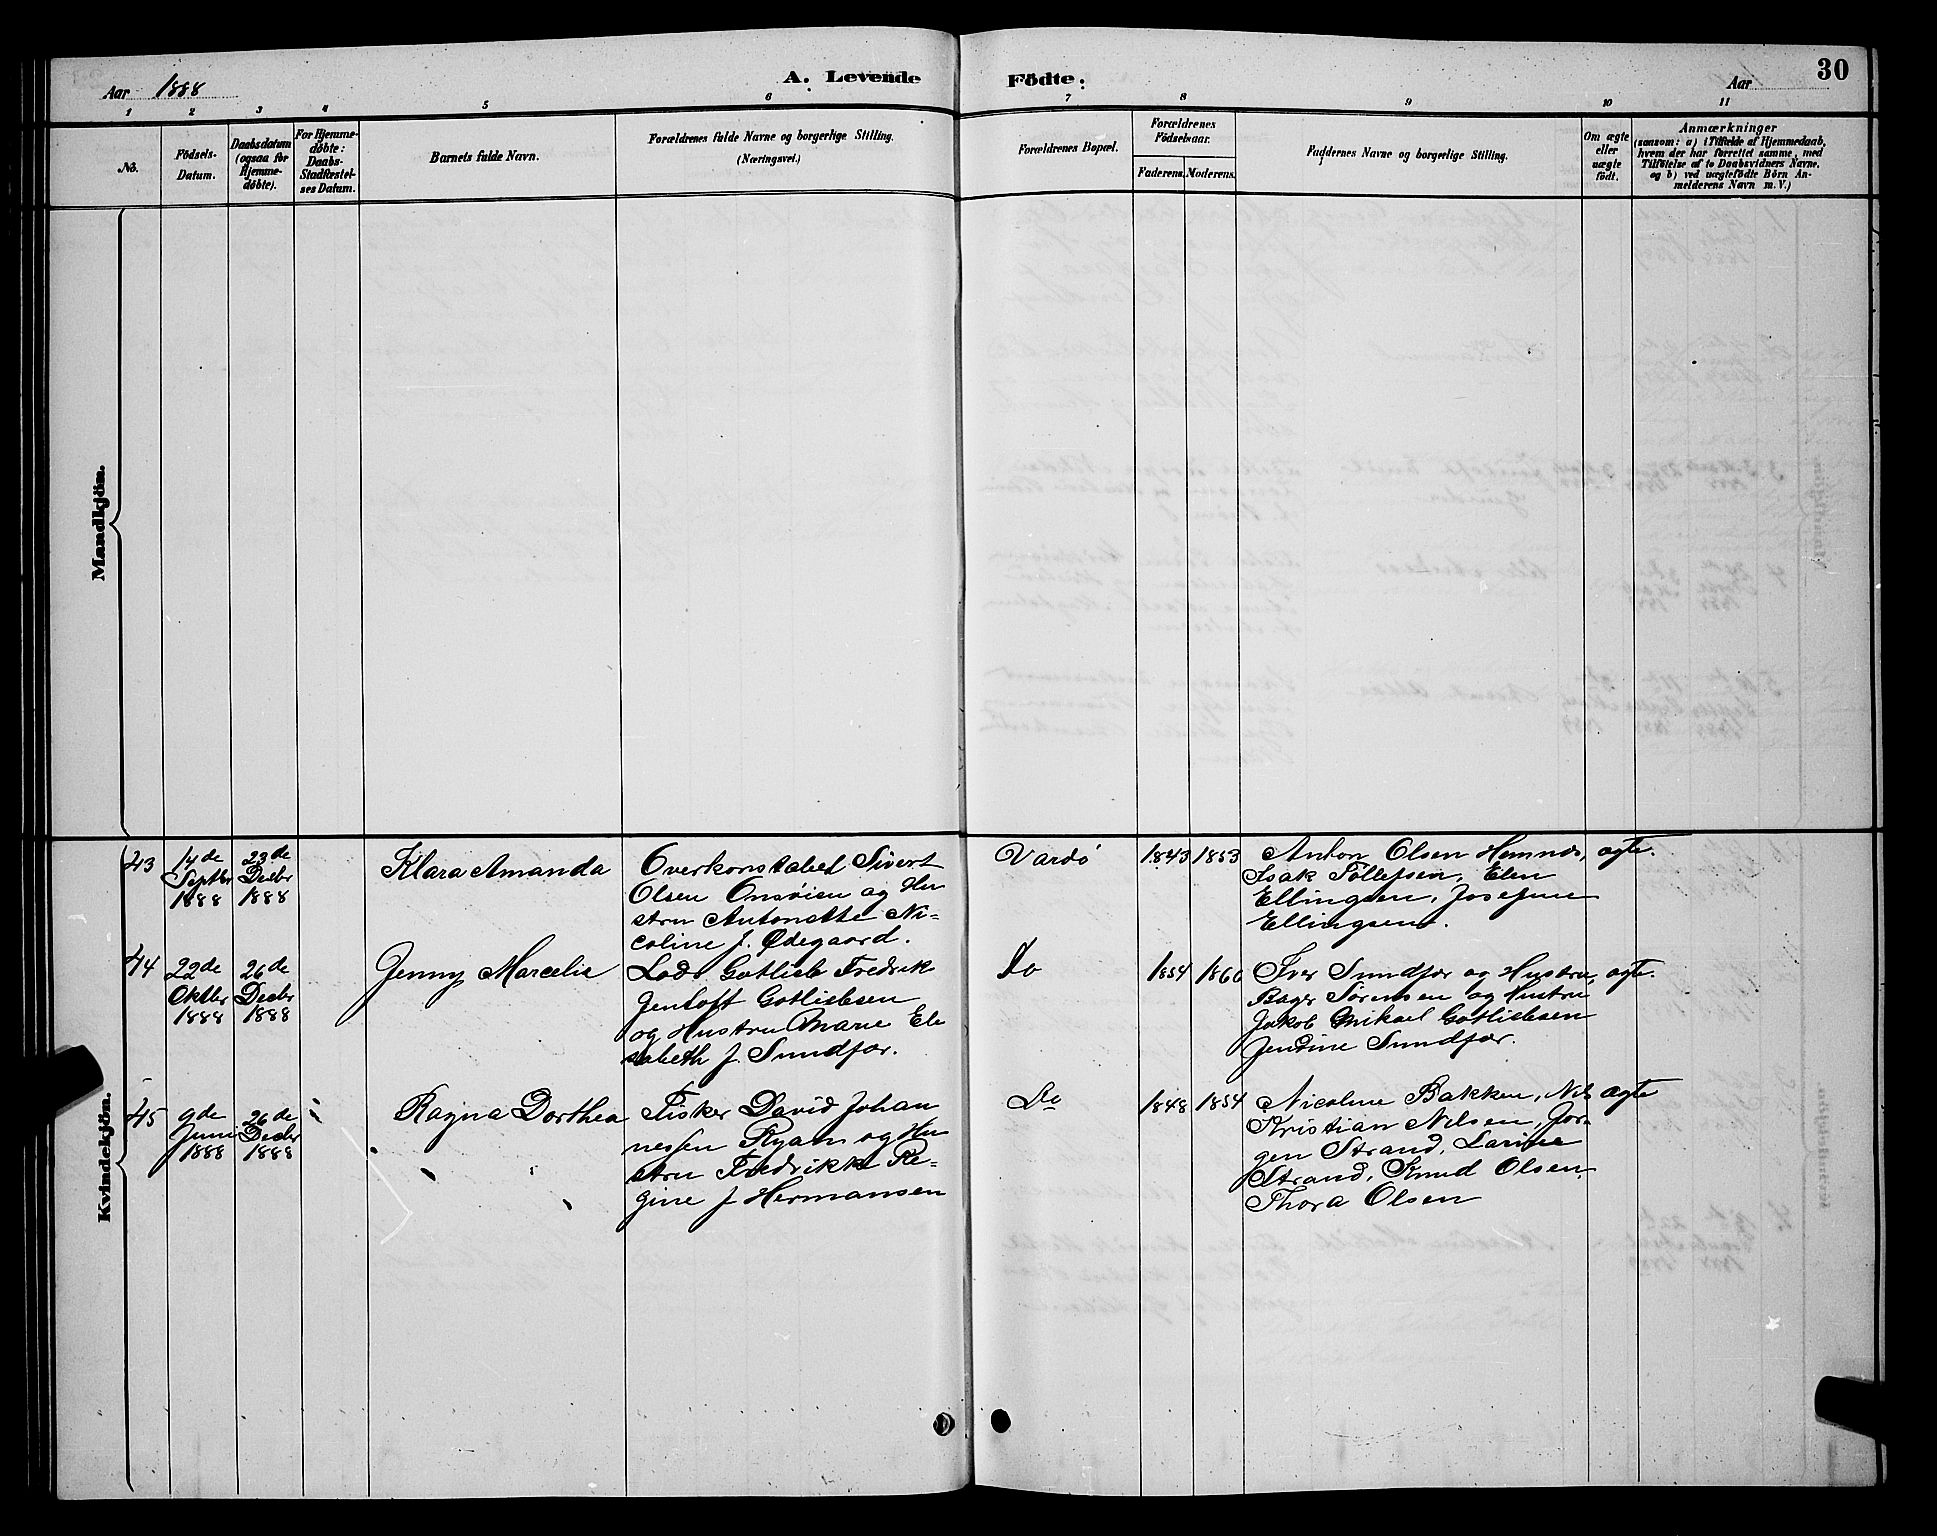 Aar 1888
A. Levende
Födte:
Aar
30
1
2
3
4
5
6
7
8
9
10
11
No.
Födsels-
Datum.
Daabsdatum
(ogsaa for
Hjemme-
döbte).
For Hjemme-
döbte:
Daabs-
Stadfæstel-
ses Datum.
Barnets fulde Navn.
Forældrenes fulde Navne og borgerlige Stilling.
(Næringsvei.)
Forældrenes Bopæl.
Forældrenes
Födselsaar.
Faderens.
Moderens.
Faddernes Navne og borgerlige Stilling.
Om ægte
eller
uægte
födt.
Anmærkninger
(saasom: a) i Tilfælde af Hjemmedaab,
hvem der har forrettet samme, med
Tilföielse af to Daabsvidners Navne.
og b) ved uægtefödte Börn An-
melderens Navn m. V.)
Mandkjön.
Kvindekjön.
43
14de
Septbr
1888
23de
Decbr
1888
Klara Amanda
Overkonstabel Sivert
Olsen Omsöien og Hu
stru Antonette Ni-
coline f. Ødegaard.
Vardö
1843
1853
Anton Olsen Hemnds,
Isak Tollefsen, Elen
Ellingsen, Josefine
Ellingsen.
ægte.
44
22de
Oktbr
1888
26de
Decbr
1888
Jenny Marcelie
Lods Gotlieb Fredrik
Jentoft Gotliebsen
og Hustru Marie Ele
sabeth f. Sundfær.
Do
1854
1860
Iver Sundfær og Hustru,
Bager Sörensen og Hustru
Jakob Mikael Gotliebsen
Jendine Sundfær.
ægte.
45
9de
Juni
1888
26de
Decbr
1888
Ragna Dorthea
Fisker David Johan
nessen Ryan og Hu
stru Fredrikke Re-
gine f Hermansen
Do
1848
1854
Nicoline Bakken, Nils
Kristian Nilsen, Jör-
gen Strand, Larine
Strand, Knud Olsen,
Thora Olsen
ægte